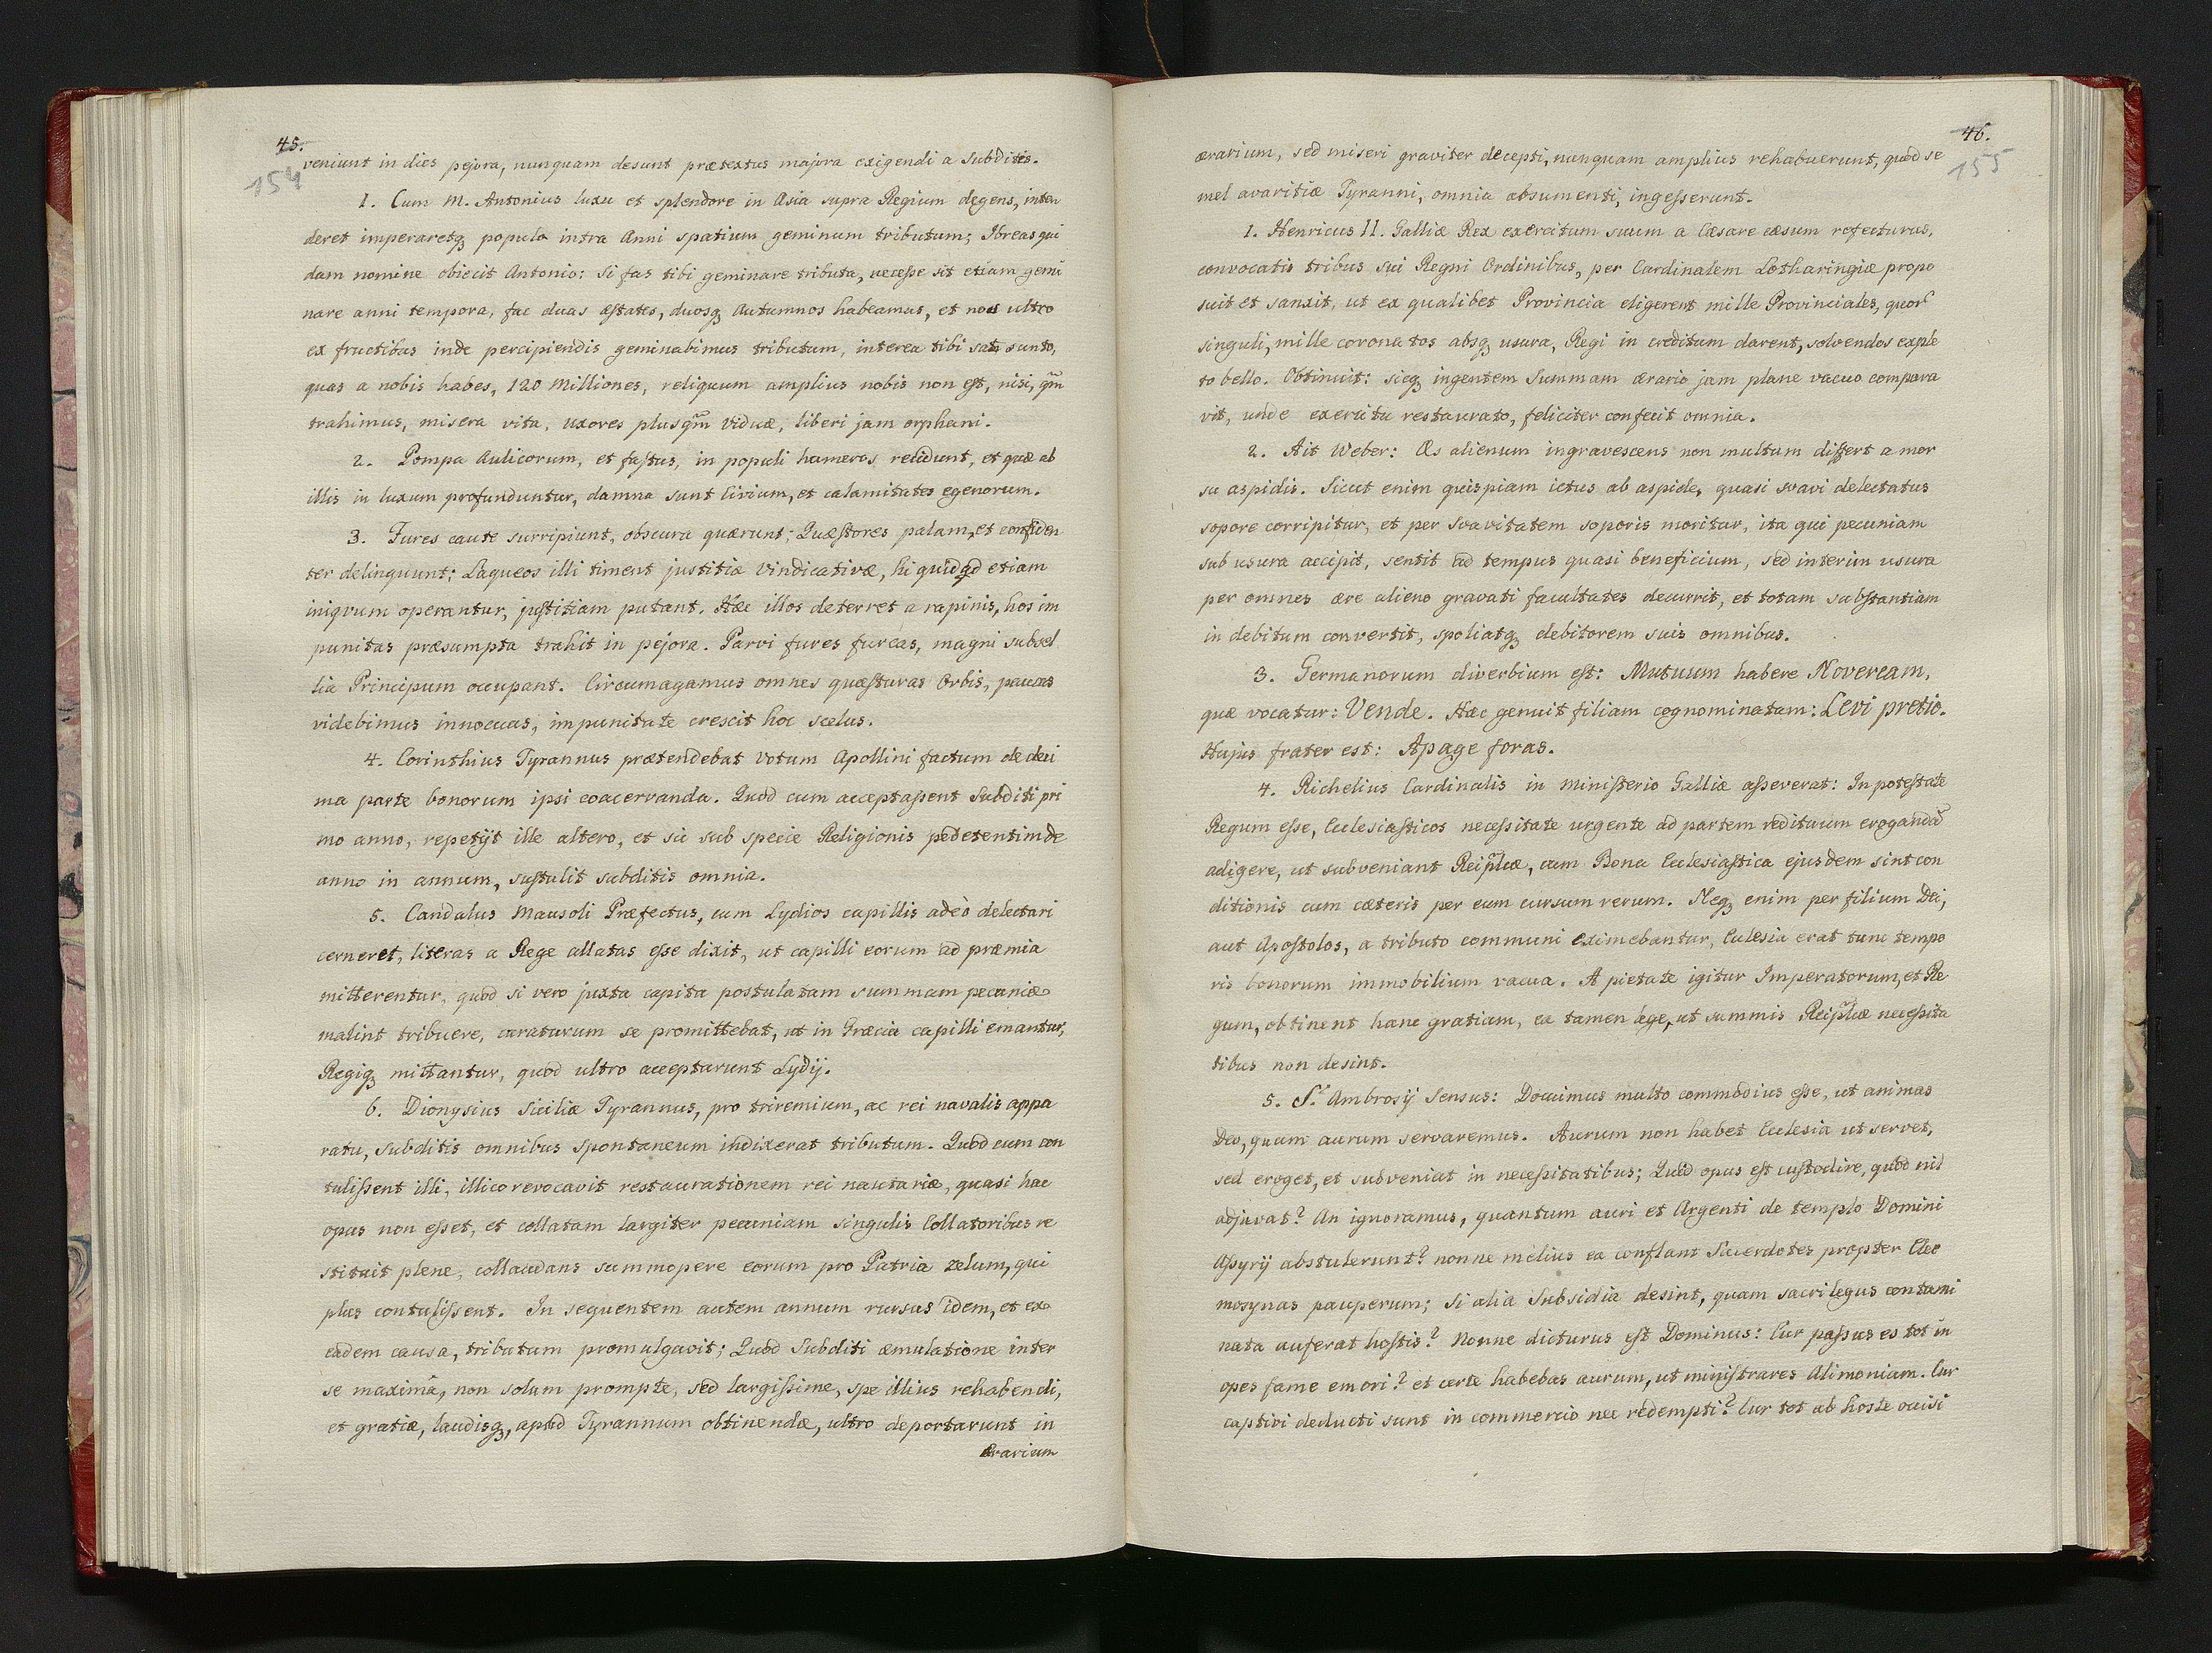 45.
154
veniunt in dies pejora, nunquam desunt prætextus majora exigendi a Subditis.
1. Cum M. Antonius luxu et splendore in Asia supra Regium degens, inten
deret imperaretq populo intra Anni spatium geminum tributum; Ibreas qui
dam nomine obiecit Antonio: Si fas tibi geminare tributa, necesse sit etiam gemi
nare anni tempora, fac duas æstates, duosq Autumnos habeamus, et nos ultro
ex fructibus inde percipiendis geminabimus tributum, interea tibi satis sunto,
quas a nobis habes, 120 Milliones, reliquum amplius nobis non est, nisi, qm̄
trahimus, misera vita, uxores plusqm̄ viduæ, liberi jam orphani.
2. Pompa Aulicorum, et fastus, in populi humeros recidunt, et quæ ab
illis in luxum profunduntur, damna sunt Civium, et calamitates egenorum.
3. Fures caute surripiunt, obscura quærunt; Quæstores palam, et confiden
ter delinquunt; Laqueos illi timent justitiæ vindicativæ, hi quidqd etiam
iniqvum operantur, justitiam putant. Hæc illos deterret a rapinis, hos im
punitas præsumpta trahit in pejora. Parvi fures furcas, magni subsel
lia Principum occupant. Circumagamus omnes quæsturas Orbis, paucas
videbimus innocuas, impunitate crescit hoc scelus.
4. Corinthius Tyrannus prætendebat Votum Apollini factum de deci
ma parte bonorum ipsi coacervanda. Quod cum acceptassent Subditi pri
mo anno, repetijt ille altero, et sic sub specie Religionis pedetentim de
anno in annum, sustulit subditis omnia.
5. Candalus Mausoli Præfectus, cum Lydios capillis adeò delectari
cerneret, literas a Rege allatas esse dixit, ut capilli eorum ad præmia
mitterentur, quod si vero juxta capita postulatam summam pecuniæ
malint tribuere, curaturum se promittebat, ut in Græcia capilli emantur,
Regiq mittantur, quod ultro acceptarunt Lydij.
6. Dionysius Siciliæ Tyrannus, pro triremium, ac rei navalis appa
ratu, subditis omnibus spontaneum indixerat tributum. Quod cum con
tulissent illi, illico revocavit restaurationem rei nautariæ, quasi hac
opus non esset, et collatam largiter pecuniam singulis Collatoribus re
stituit plene, collaudans summopere eorum pro Patria zelum, qui
plus contulissent. In sequentem autem annum rursus idem, et ex
eadem causa, tributum promulgavit; Quod Subditi æmulatione inter
se maximâ, non solum prompte, sed largissime, spe illius rehabendi,
et gratiæ, laudisq, apud Tyrannum obtinendæ, ultro deportarunt in
ærarium
46.
155
ærarium, sed miseri graviter decepti, nunquam amplius rehabuerunt, quod se
mel avaritiæ Tyranni, omnia absumenti, ingesserunt.
1. Henricus II. Galliæ Rex exercitum suum a Cæsare cæsum refecturus,
convocatis tribus sui Regni Ordinibus, per Cardinalem Lotharingiæ propo
suit et sanxit, ut ex qualibet Provincia eligerent mille Provinciales, quor
singuli, mille coronatos absq usura, Regi in creditum darent, solvendos exple
to bello. Obtinuit: sicq ingentem Summam ærario jam plane vacuo compara
vit, unde exercitu restaurato, feliciter confecit omnia.
2. Ait Weber: Æs alienum ingravescens non multum differt a mor
su aspidis. Sicut enim quispiam ictus ab aspide, quasi svavi delectatus
sopore corripitur, et per svavitatem soporis moritur, ita qui pecuniam
sub usura accipit, sentit ad tempus quasi beneficium, sed interim usura
per omnes ære alieno gravati facultates decurrit, et totam substantiam
in debitum convertit, spoliatq debitorem suis omnibus.
3. Germanorum diverbium est: Mutuum habere Novercam,
quæ vocatur: Vende. Hæc genuit filiam cognominatam: Levi pretio.
Hujus frater est: Apage foras.
4. Richelius Cardinalis in Ministerio Galliæ asseverat: In potestate
Regum esse, Ecclesiasticos necessitate urgente ad partem redituum erogandā
adigere, ut subveniant Reipliæ, cum Bona Ecclesiastica ejusdem sint con
ditionis cum cæteris per eum cursum rerum. Neq enim per filium Dei,
aut Apostolos, a tributo communi eximebantur, Ecclesia erat tunc tempo
ris bonorum immobilium vacua. A pietate igitur Imperatorum, et Re
gum, obtinent hanc gratiam, ea tamen lege, ut summis Reipliæ necessita
tibus non desint.
5. S. Ambrosij Sensus: Docuimus multo commodius esse, ut animas
Deo, quam aurum servaremus. Aurum non habet Ecclesia ut servet,
sed eroget, et subveniat in necessitatibus; Quid opus est custodire, quod nil
adjuvat? An ignoramus, quantum auri et Argenti de templo Domini
Assyrij abstulerunt? nonne melius ea conflant Sacerdotes propter Elee
mosynas pauperum; si alia Subsidia desint, quam sacrilegus contami
nata auferat hostis? Nonne dicturus est Dominus: Cur passus es tot in
opes fame emori? et certe habebas aurum, ut ministrares Alimoniam. Cur
captivi deducti sunt in commercio nec redempti? Cur tot ab hoste occisi